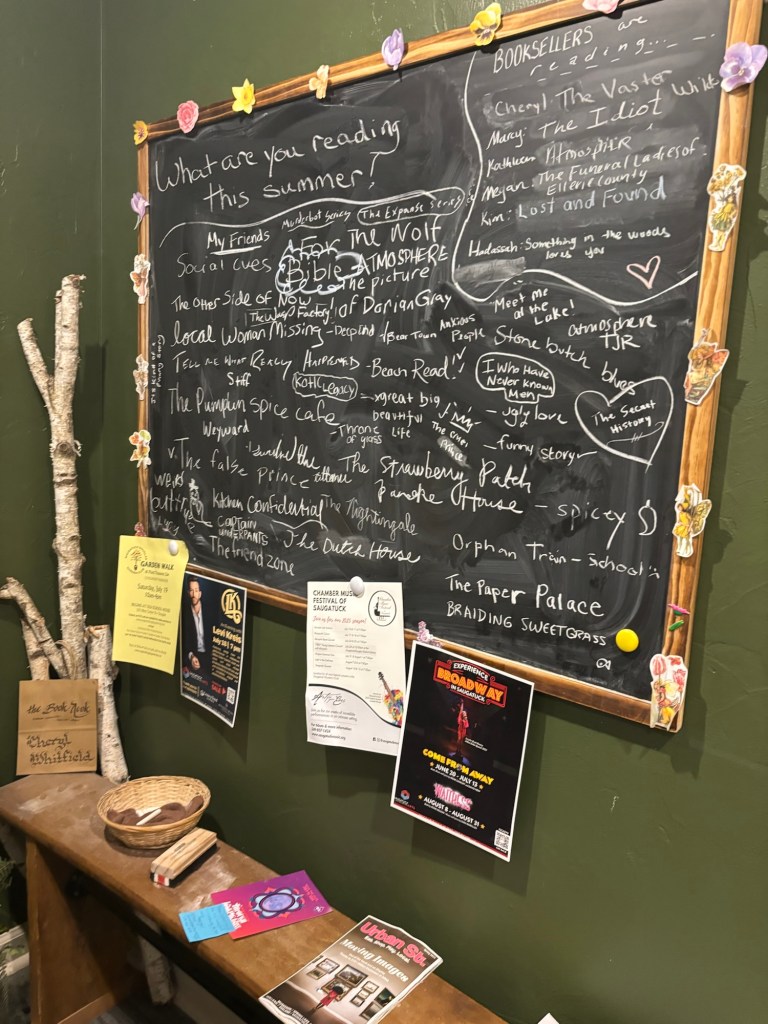 What are you reading
this summer?
BOOKSELLERS are
reading...
Cheryl: The Vaster Wilds
Marcy: The Idiot
Kathleen: Atmosphere
Megan: The Funeral Ladies of
Ellerie County
Kim: Lost and Found
Hadassah: Something in the woods
loves you
My Friends
Murderbot Series
The Expanse Series
Social cues
For The Wolf
Bible
ATMOSPHERE
The picture
of Dorian Gray
The Other Side of Now
The Wasp Factory
Meet me
at the
Lake!
local Woman Missing
Deep End
Bear Town
Anxious
People
Stone butch blues
atmosphere
TJR
TELL ME WHAT REALLY HAPPENED
Beach Read!
I Who Have
Never Known
Men
The Secret
History
Stiff
great big
beautiful
life
ugly love
The Pumpkin spice cafe
Throne
of glass
funny story
Weyward
V. The false prince
The Strawberry Patch
Pancake House - spicey
weird
Kitchen Confidential
The Nightingale
CAPTAIN
UNDERPANTS
The Dutch House
Orphan Train - school
The friend zone
The Paper Palace
BRAIDING SWEETGRASS
GARDEN WALK
Saturday, July 19
Levi Kreis
CHAMBER MUSIC
FESTIVAL OF
SAUGATUCK
EXPERIENCE
BROADWAY
IN SAUGATUCK
COME FROM AWAY
JUNE 20 - JULY 13
AUGUST 8 - AUGUST 31
the Book Nook
Cheryl
Whitfield
Urban St.
Eat. Shop. Play. Local.
Moving Images